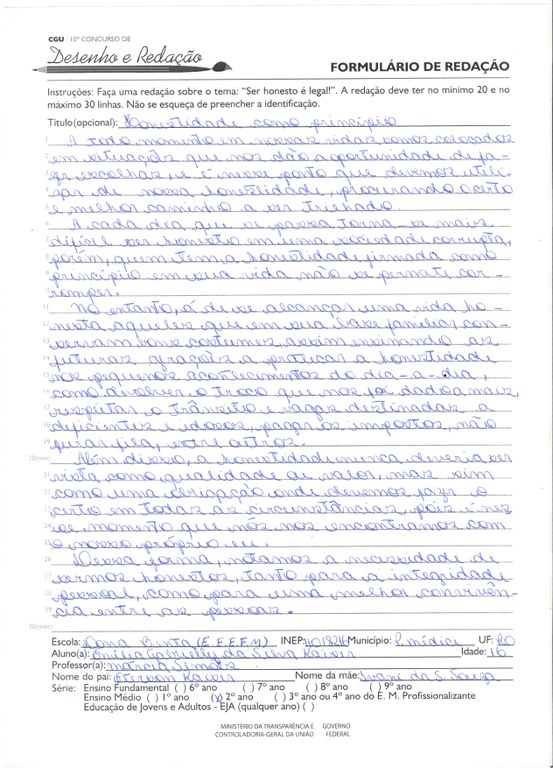 CGU | 10º CONCURSO DE
Desenho e Redação
FORMULÁRIO DE REDAÇÃO
Instruções: Faça uma redação sobre o tema: "Ser honesto é legal!". A redação deve ter no mínimo 20 e no
máximo 30 linhas. Não se esqueça de preencher a identificação.
Título(opcional): Honestidade como princípio
1 A todo momento em nossas vidas somos colocados
2 em situações que nos dão a oportunidade de fa-
3 zer escolhas, e é nesse ponto que devemos utili-
4 zar de nossa honestidade, procurando o certo
5 e melhor caminho a ser trilhado.
6 A cada dia que se passa torna-se mais
7 difícil ser honesto em uma sociedade corrupta,
8 porém, quem tem a honestidade firmada como
9 princípio em sua vida não se permite cor-
10 romper.
11 No entanto, á de se alcançar uma vida ho-
12 nesta aqueles que em sua base familiar con-
13 servam bons costumes, assim ensinando as
14 futuras gerações a praticar a honestidade
15 nos pequenos acontecimentos do dia-a-dia,
16 como devolver o troco que nos foi dado a mais,
17 respeitar o trânsito e vagas destinadas a
18 deficientes e idosos, pagar os impostos, não
19 furar fila, entre outros.
20(mín) Além disso, a honestidade nunca deveria ser
21 vista como qualidade ou valor, mas sim
22 como uma obrigação onde devemos fazer o
23 certo em todas as circunstâncias, pois é nes
24 se momento que nós nos encontramos com
25 o nosso próprio eu.
26 Dessa forma, notamos a necessidade de
27 sermos honestos, tanto para a integridade
28 pessoal, como para uma melhor convivên-
29 cia entre as pessoas.
30(máx)
Escola: Dona Benta (E.E.E.F.M) INEP: Município: P. médici UF: RO
Aluno(a): Emilia Gabrielly da Silva Idade: 16
Professor(a): marcia
Nome do pai: Nome da mãe: Ivani da S. Souza
Série: Ensino Fundamental ( ) 6º ano ( ) 7º ano ( ) 8º ano ( ) 9º ano
Ensino Médio ( ) 1º ano (x) 2º ano ( ) 3º ano ou 4º ano do E. M. Profissionalizante
Educação de Jovens e Adultos - EJA (qualquer ano) ( )
MINISTÉRIO DA TRANSPARÊNCIA E GOVERNO
CONTROLADORIA-GERAL DA UNIÃO FEDERAL